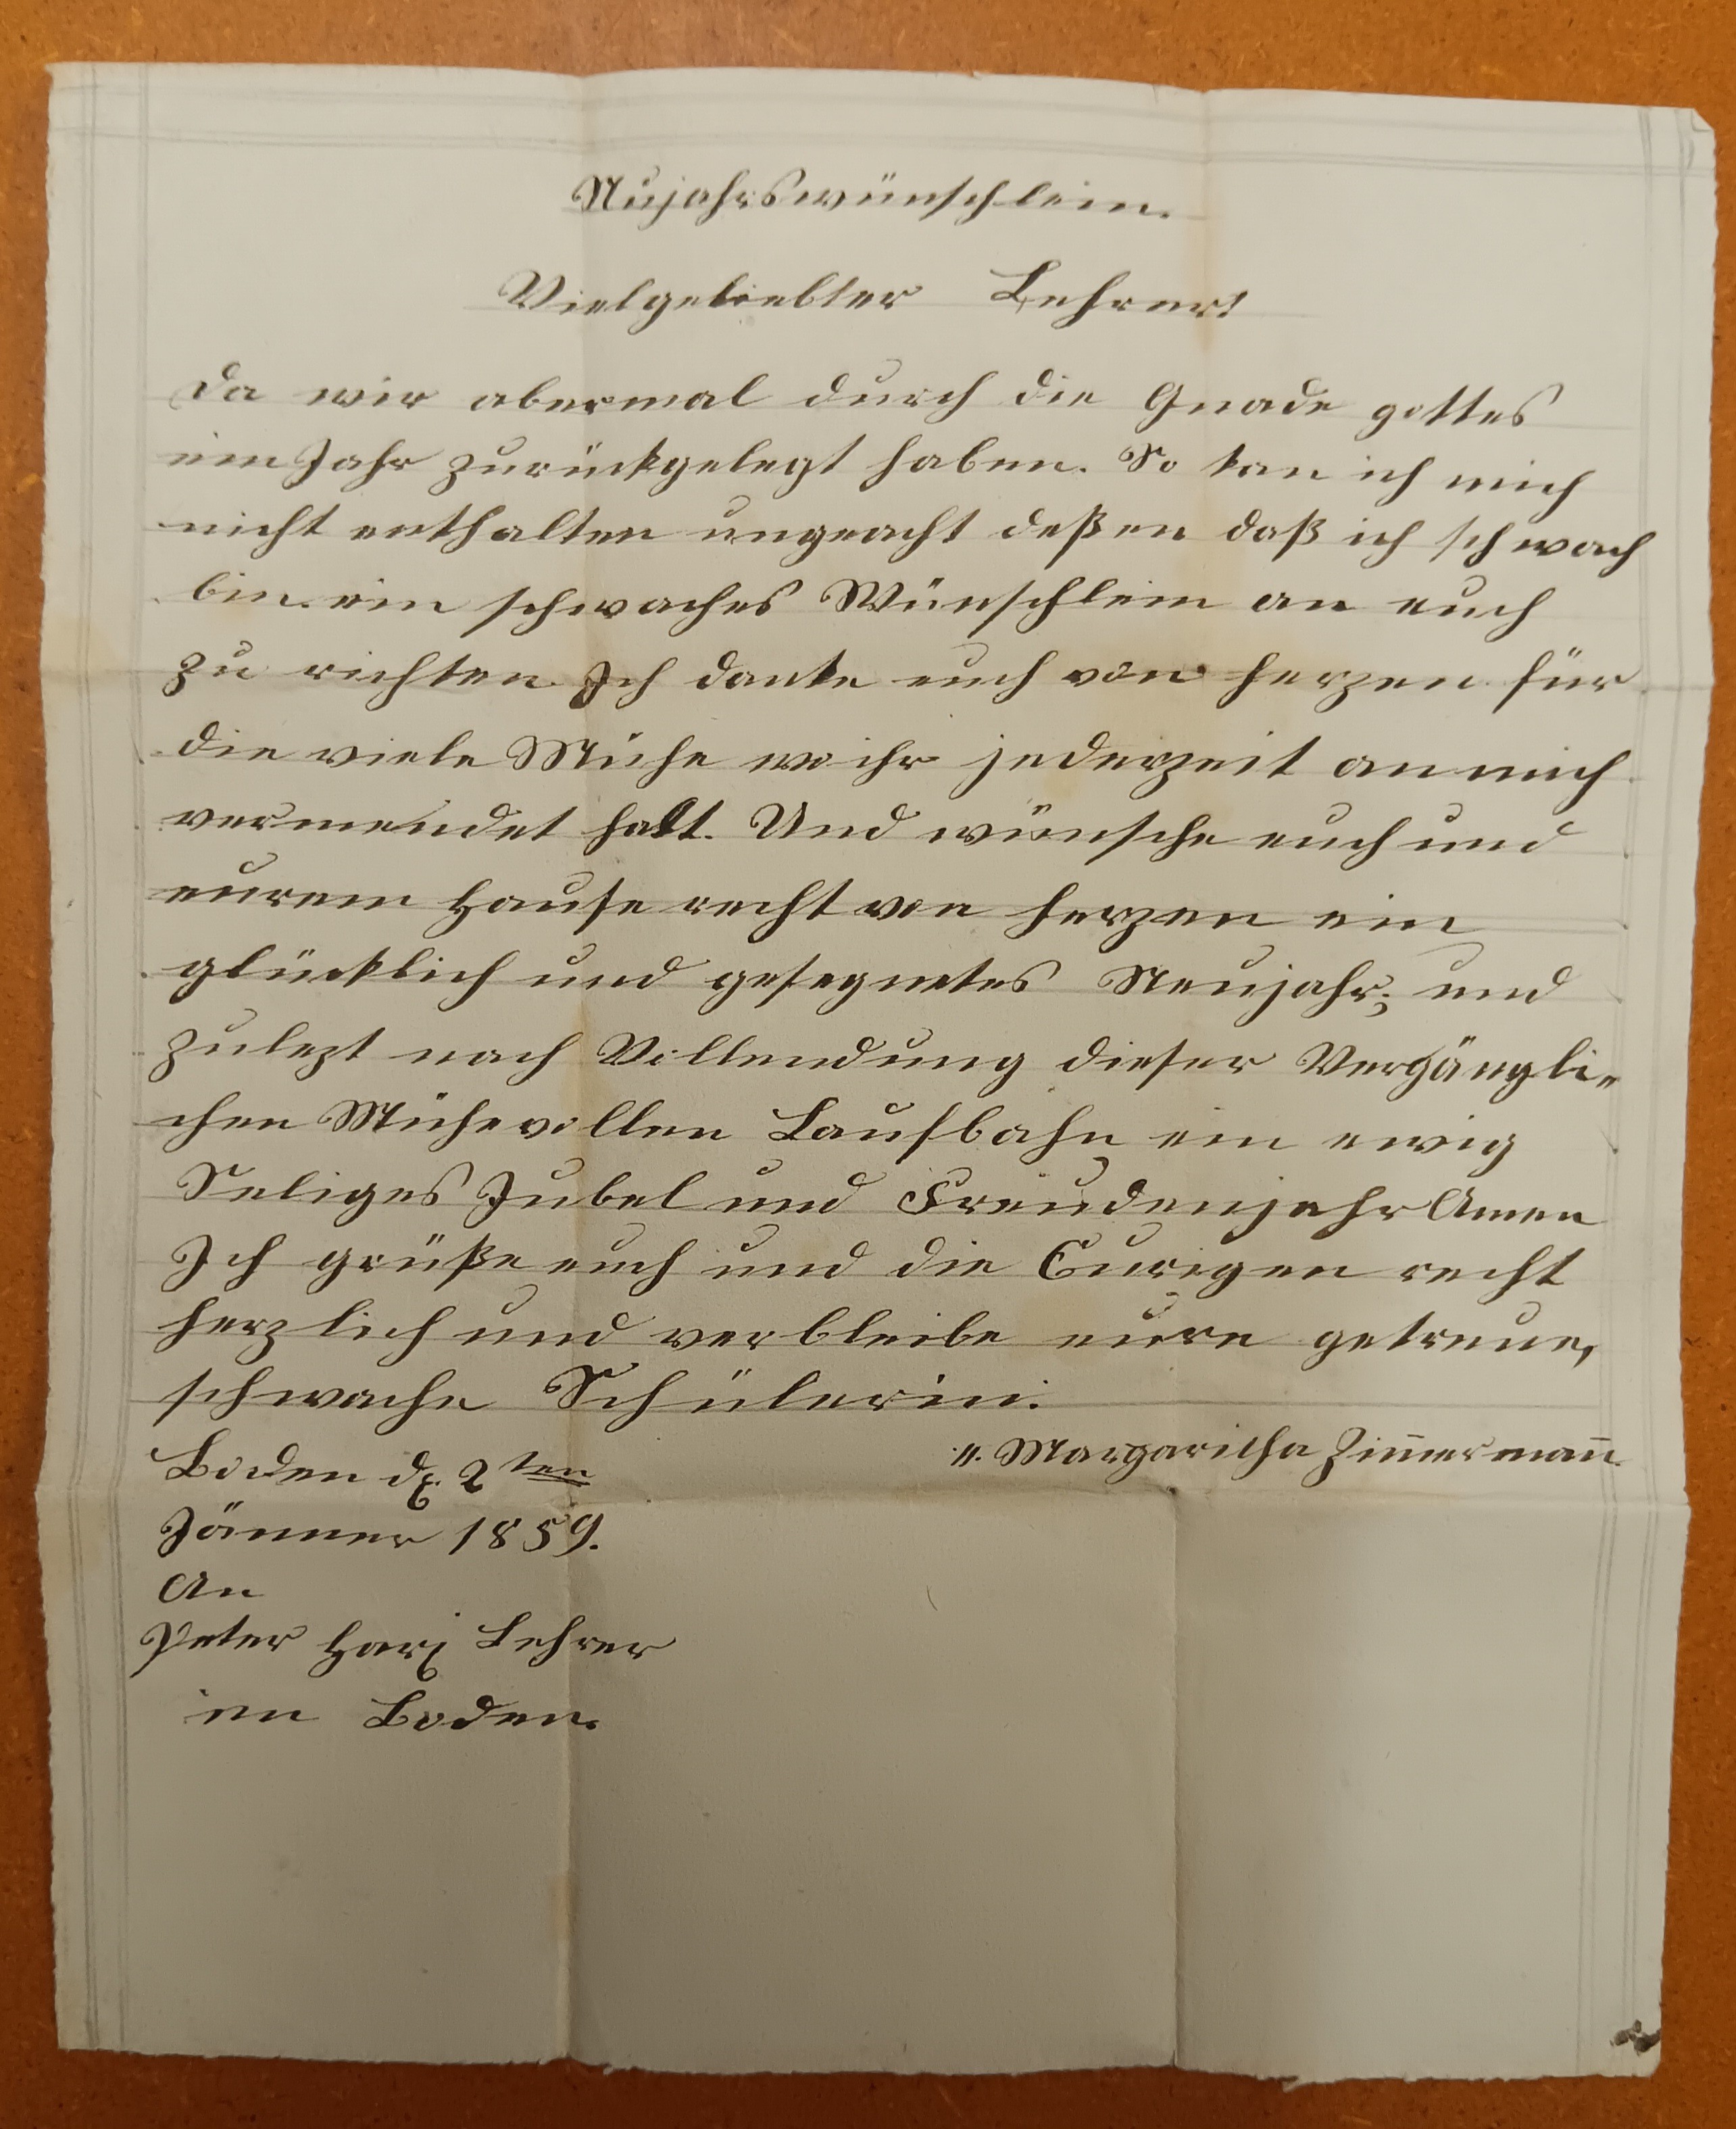 Nujahrswünschlein.
Vielgeliebter Lehrer!
Da wir abermal durch die Gnade gottes
ein Jahr zurückgelegt haben. So kan ich mich
nicht enthalten ungeacht deßen daß ich schwach
bin ein schwaches Wünschlein an euch
zu richten. Ich danke euch von herzen für
die viele Mühe wo ihr jederzeit an mich
verwendet habt. Und wünsche euch und
eurem Hause recht von herzen ein
glücklich und gesegnetes Neujahr; und
zulezt nach Vollendung dieser Vergängli„
chen Mühevollen Laufbahn ein ewig
Seliges Jubel und Freudenjahr Amen
Ich grüße euch und die Eurigen recht
herzlich und verbleibe eure getreue,
schwache Schülerin.
Margaritha Zim̄erman̄
Boden d. 2ten
Jänner 1859.
An
Peter Hari Lehrer
im Boden.